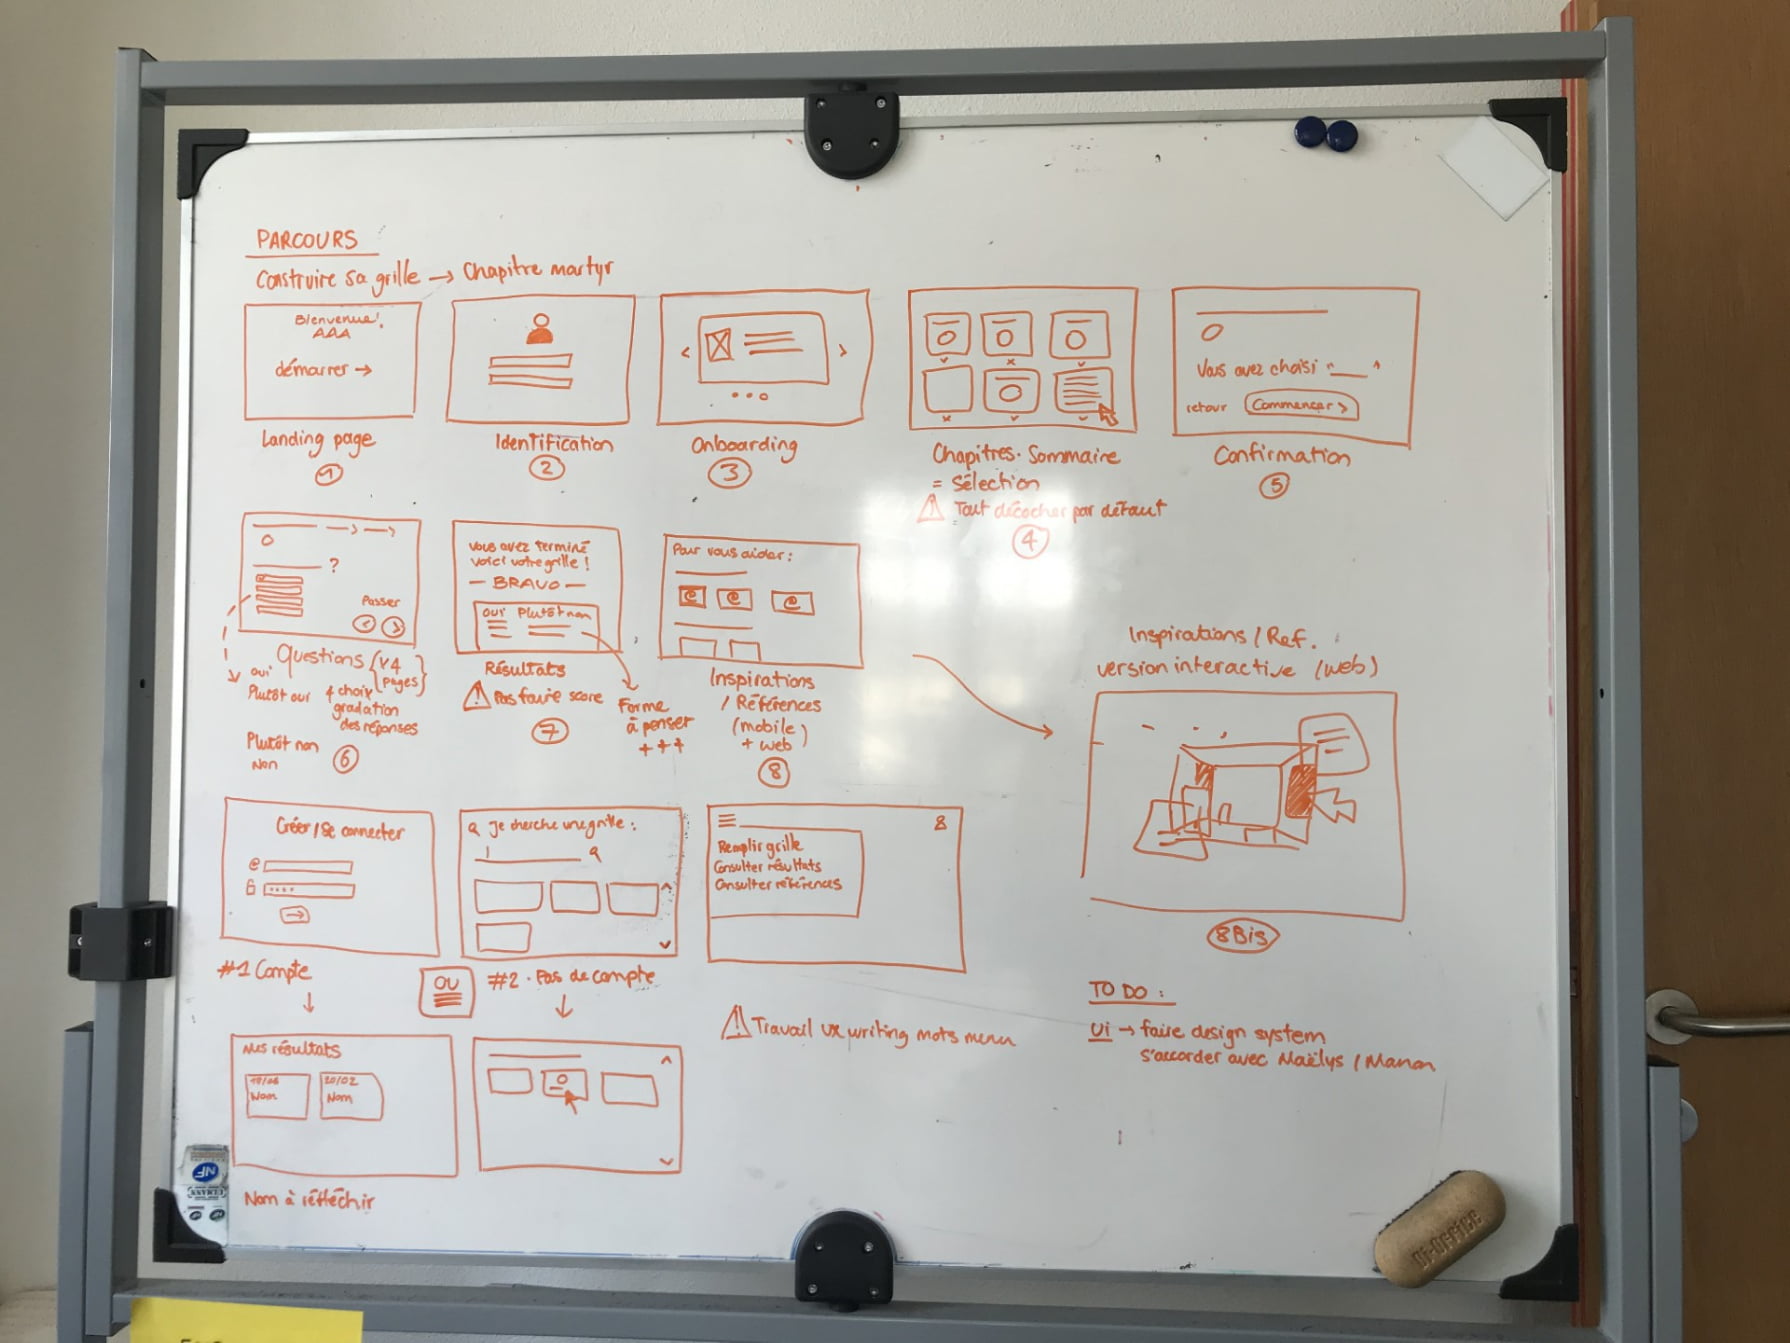 PARCOURS
Construire sa grille → Chapitre martyr
Bienvenue!
démarrer →
Landing page
1
Identification
2
Onboarding
3
Chapitres. Sommaire
= Sélection
⚠ Tout décocher par défaut
4
Vous avez choisi "___"
retour Commencer >
Confirmation
5
?
Passer
< >
Questions {x4 pages}
oui
Plutôt oui
4 choix
gradation
des réponses
Plutôt non
Non
6
Vous avez terminé
voici votre grille !
— BRAVO —
oui Plutôt non
Résultats
⚠ Pas faire score
7
Forme
à penser
+++
Pour vous aider :
@ @ @
Inspirations
/ Références
(mobile)
+ web
8
Inspirations / Ref.
version interactive (web)
8Bis
Créer / Se connecter
@
#1 Compte
OU
Je cherche une grille :
#2 . Pas de compte
Remplir grille
Consulter résultats
Consulter références
⚠ Travail ux writing mots menu
Mes résultats
20/02
Nom
Nom
Nom à réfléchir
TO DO :
Ui → faire design system
s'accorder avec Maëlys / Manon
NF
Bi-Office